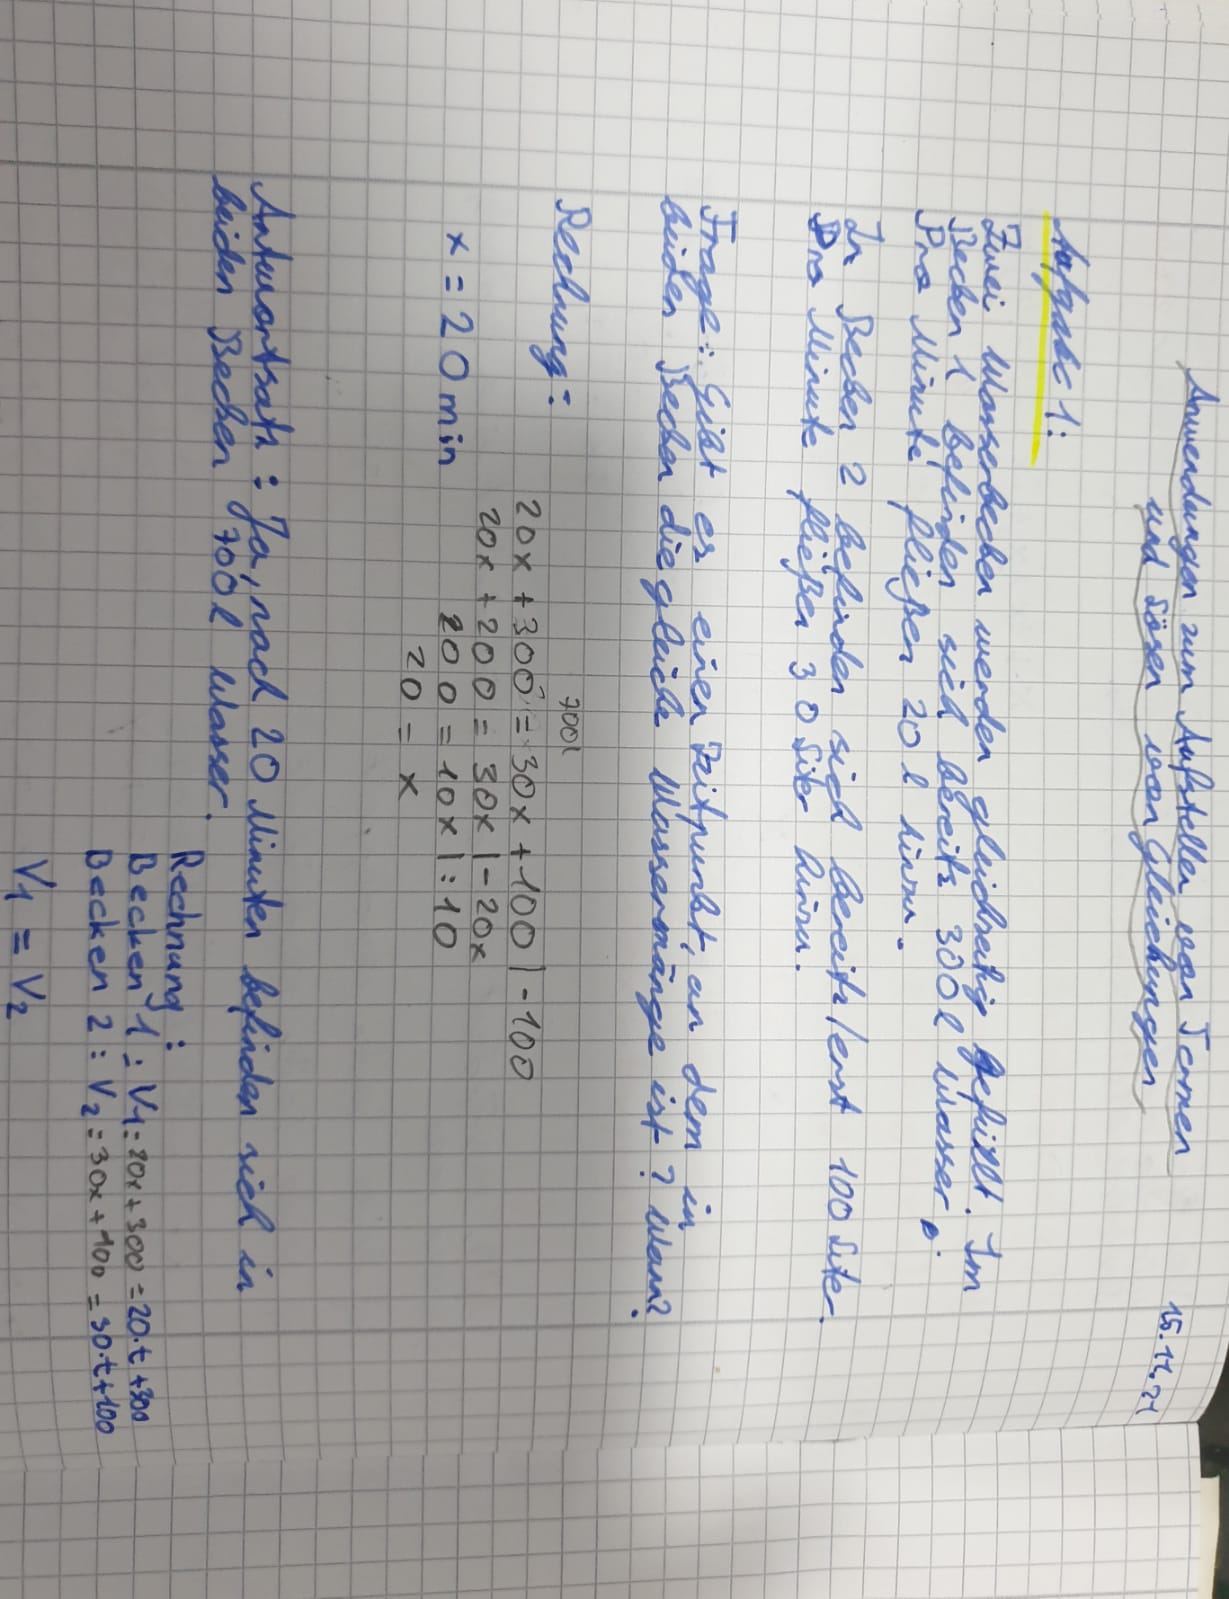 15.11.21
Anwendungen zum Aufstellen von Termen
und Lösen von Gleichungen
Aufgabe 1:
Zwei Wasserbecken werden gleichzeitig gefüllt. Im
Becken 1 befinden sich bereits 300l Wasser.
Pro Minute fließen 20 l hinzu.
In Becken 2 befinden sich bereits/erst 100 Liter.
Pro Minute fließen 30 Liter hinzu.
Frage: Gibt es einen Zeitpunkt, an dem in
beiden Becken die gleiche Wassermänge ist? Wann?
Rechnung:
700l
20x + 300 = 30x + 100 | -100
20x + 200 = 30x | -20x
200 = 10x | :10
20 = x
x = 20 min
Antwortsatz: Ja, nach 20 Minuten befinden sich in
beiden Becken 700l Wasser.
Rechnung:
Becken 1: V1 = 20x + 300 = 20·t + 300
Becken 2: V2 = 30x + 100 = 30·t + 100
V1 = V2